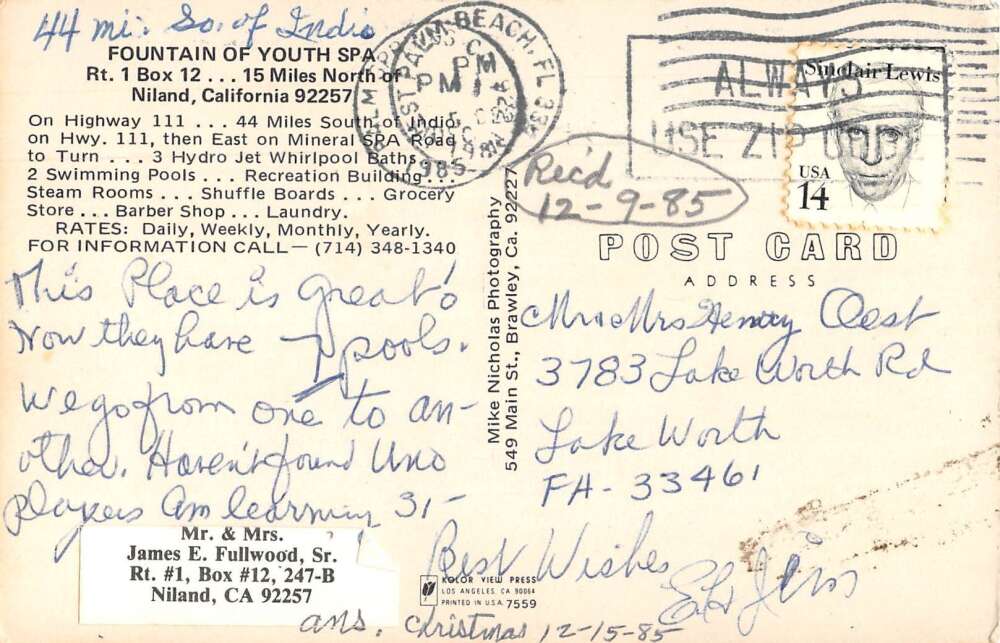 44 mi. So. of Indio
FOUNTAIN OF YOUTH SPA
Rt. 1 Box 12 . . . 15 Miles North of
Niland, California 92257
On Highway 111 . . . 44 Miles South of Indio
on Hwy. 111, then East on Mineral SPA Road
to Turn . . . 3 Hydro Jet Whirlpool Baths . . .
2 Swimming Pools . . . Recreation Building . . .
Steam Rooms . . . Shuffle Boards . . . Grocery
Store . . . Barber Shop . . . Laundry.
RATES: Daily, Weekly, Monthly, Yearly.
FOR INFORMATION CALL — (714) 348-1340
This Place is great!
Now they have 7 pools.
We go from one to an-
other. Haven't found Uno
players am learning 31-
Mr. & Mrs.
James E. Fullwood, Sr.
Rt. #1, Box #12, 247-B
Niland, CA 92257
Mike Nicholas Photography
549 Main St., Brawley, Ca. 92227
PALM BEACH, FL
PM
1985
ALWAYS
USE ZIP
Sinclair Lewis
USA
14
Rec'd
12-9-85
POST CARD
ADDRESS
Mr & Mrs Henry Oest
3783 Lake Worth Rd
Lake Worth
Fla- 33461
Best Wishes
Jim
KOLOR VIEW PRESS
LOS ANGELES, CA 90064
PRINTED IN U.S.A. 7559
ans. Christmas 12-15-85